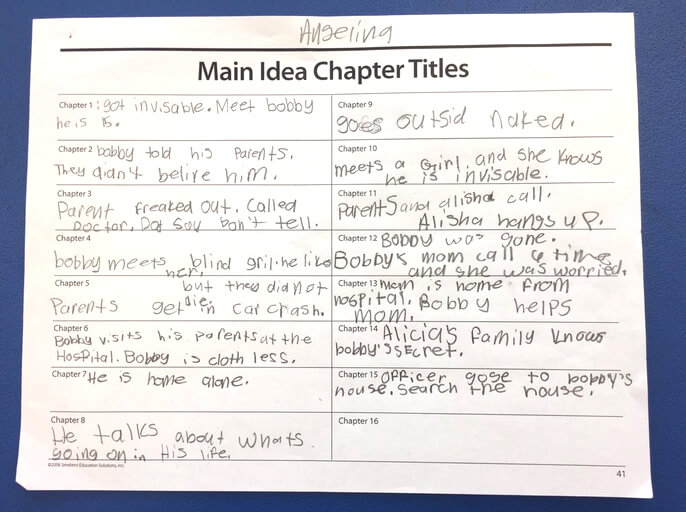 Angelina
Main Idea Chapter Titles
Chapter 1: got invisable. Meet bobby
he is 15.
Chapter 2 bobby told his Parents.
They didn't belive him.
Chapter 3
Parent freaked out. Called
Doctor. Dad Say Don't tell.
Chapter 4
bobby meets blind gril. he like
her.
Chapter 5 but they did not
die.
Parents get in car crash.
Chapter 6
Bobby visits his parents at the
Hospital. Bobby is cloth less.
Chapter 7 He is home alone.
Chapter 8
He talks about whats
going on in His life.
©2008 Smekens Education Solutions, Inc.
Chapter 9
goes outsid naked.
Chapter 10
meets a Girl. and she knows
he is invisable.
Chapter 11
Parents and alisha call.
Alisha hangs up.
Chapter 12 Bobby was gone.
Bobby's mom call 6 time
and she was worried.
Chapter 13 mom is home from
hospital. Bobby helps
mom.
Chapter 14 Alicia's family knows
bobby's secret.
Chapter 15 Officer gose to bobby's
house. Search the house.
Chapter 16
41